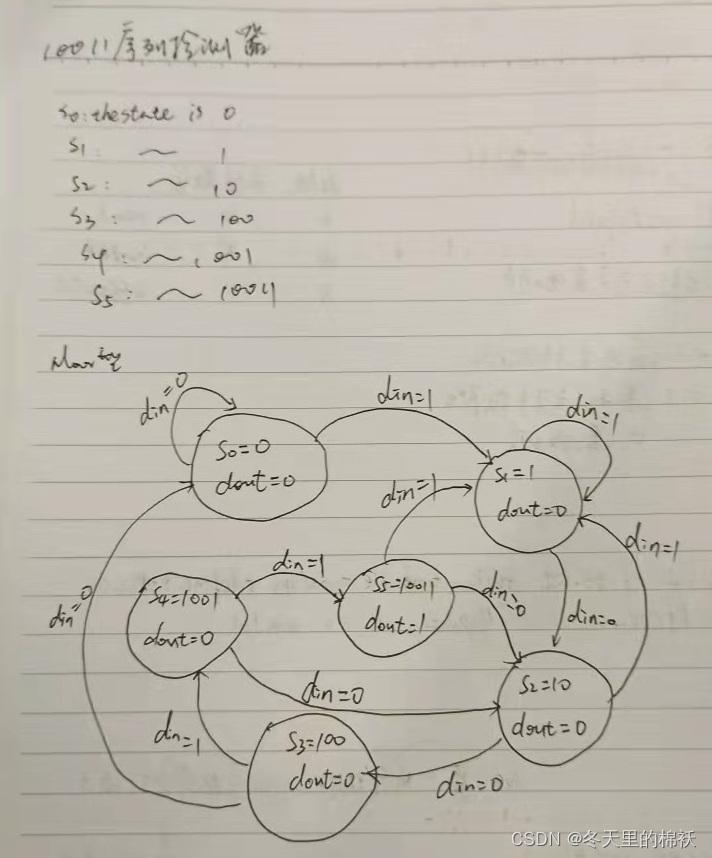 10011序列检测器
S0: the state is 0
S1: ~ 1
S2: ~ 10
S3: ~ 100
S4: ~ 1001
S5: ~ 10011
din=0
din=1
din=1
S0=0
dout=0
S1=1
dout=0
din=1
din=1
din=0
din=1
S4=1001
dout=0
S5=10011
dout=1
din=0
din=0
din=0
S2=10
dout=0
din=1
S3=100
dout=0
din=0
CSDN @冬天里的棉袄